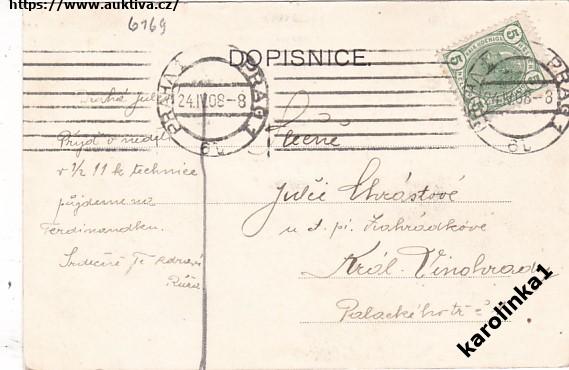 https://www.auktiva.cz/
6169
DOPISNICE.
PRAHA 1 PRAG 1
24.IV.08-8
6L
PRAHA PRAG 1
24.IV.08-8
6L
5 5
Drahá Julio
Přijď v neděli
v 1/2 11 k technice
půjdeme na
Ferdinandku.
Srdečně Tě zdraví
Růža
Slečně
Julii Chrástové
u t. pí. Zahrádkové
Král. Vinohrady
Palackého tř.
karolinka1